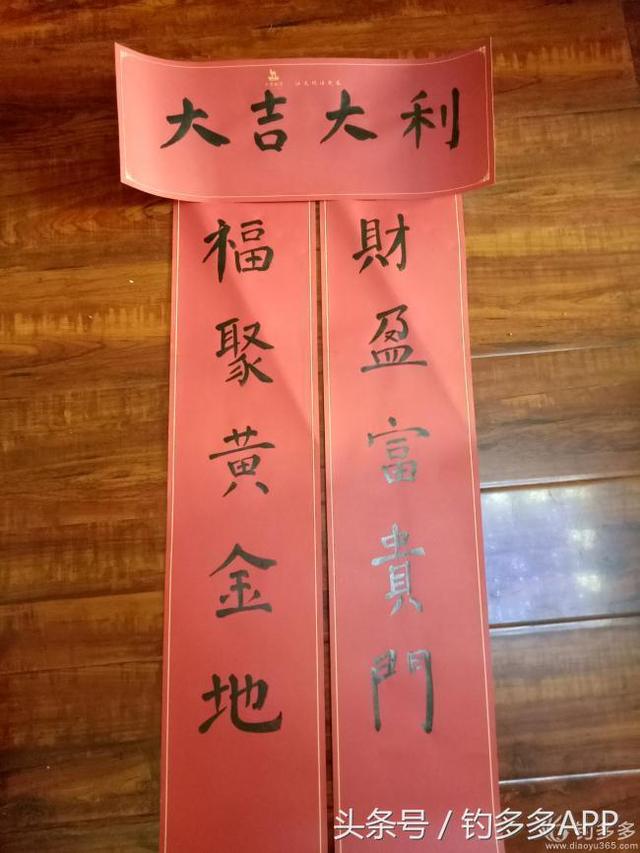 大吉大利
福聚黄金地
財盈富貴門
头条号 / 钓多多APP
钓多多
www.diaoyu365.com